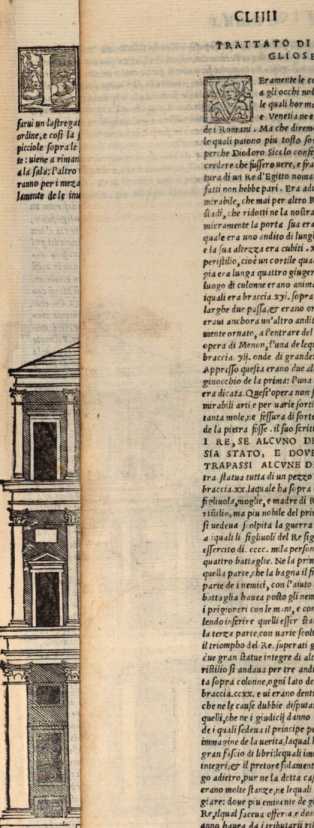 farui un lastregat
ordine, e cosi la
picciole sopra le
te: uiene a riman
ala sala: l'altro
ranno per i meza
lamente de le inu
CLIIII
TRATTATO DI
GLIOSE
Eramente le co
a gli occhi nost
le quali hor ma
e Venetia ne e
dei Romani. Ma che direm
le quali potono piu tosto so
perche Diodoro Siculo confes
credere che fussero uere, e fra
tura di un Re d'Egitto noma
fatti non hebbe pari. Era adu
mirabile, che mai per altro R
stadi, che ridotti ne la nostra
mieramente la porta sua era
quale era uno andito di lungh
e la sua altezza era cubiti
peristilio, cioè un cortile qua
gia era lunga quattro giuger
luogo di colonne erano anim
iquali era braccia xyi. sopra
larghe due passa, & erano or
eraui anchora un'altro andit
mente ornato, a l'entrare del
opera di Menon, l'una de lequ
braccia yij. onde di grande
Appresso questa erano due al
ginocchio de la prima: l'una
era dicata. Quest'opera non
mirabili arti e per uarie sort
tanta mole, ne fessura di sort
de la pietra fosse. il suo scrit
I RE, SE ALCVNO DE
SIA STATO, E DOVE
TRAPASSI ALCVNE D
tra statua tutta di un pezzo
braccia. xx. laquale ha sopra
figliuola, moglie, e madre di R
ristilio, ma piu nobile del prim
si uedeua scolpita la guerra
a iquali li figliuoli del Re sig
essercito di. cccc. mila person
quattro battaglie. Ne la prim
quella parte, che la bagna il fi
parte de i nemici, con l'aiuto
battaglia hauea posto gli nem
i prigioneri con le mani, e con
lendo inferire quelli esser sta
la terza parte, con uarie scolt
il triompho del Re. superati g
due gran statue integre di al
ristilio si andaua per tre andi
ta sopra colonne, ogni lato de
braccia. ccxx. e ui erano denti
che ne le cause dubbie disputa
quelli, che ne i giudicij danno
de i quali sedeua il principe pe
immagine de la uerita, laqual
gran fascio di libri: lequali im
integri, & il pretore solament
go adietro, pur ne la detta cap
erano molte stanze, ne lequali
giare: doue piu eminante de g
Re, elqual faceua offerta e don
anno hauea da i tributarii